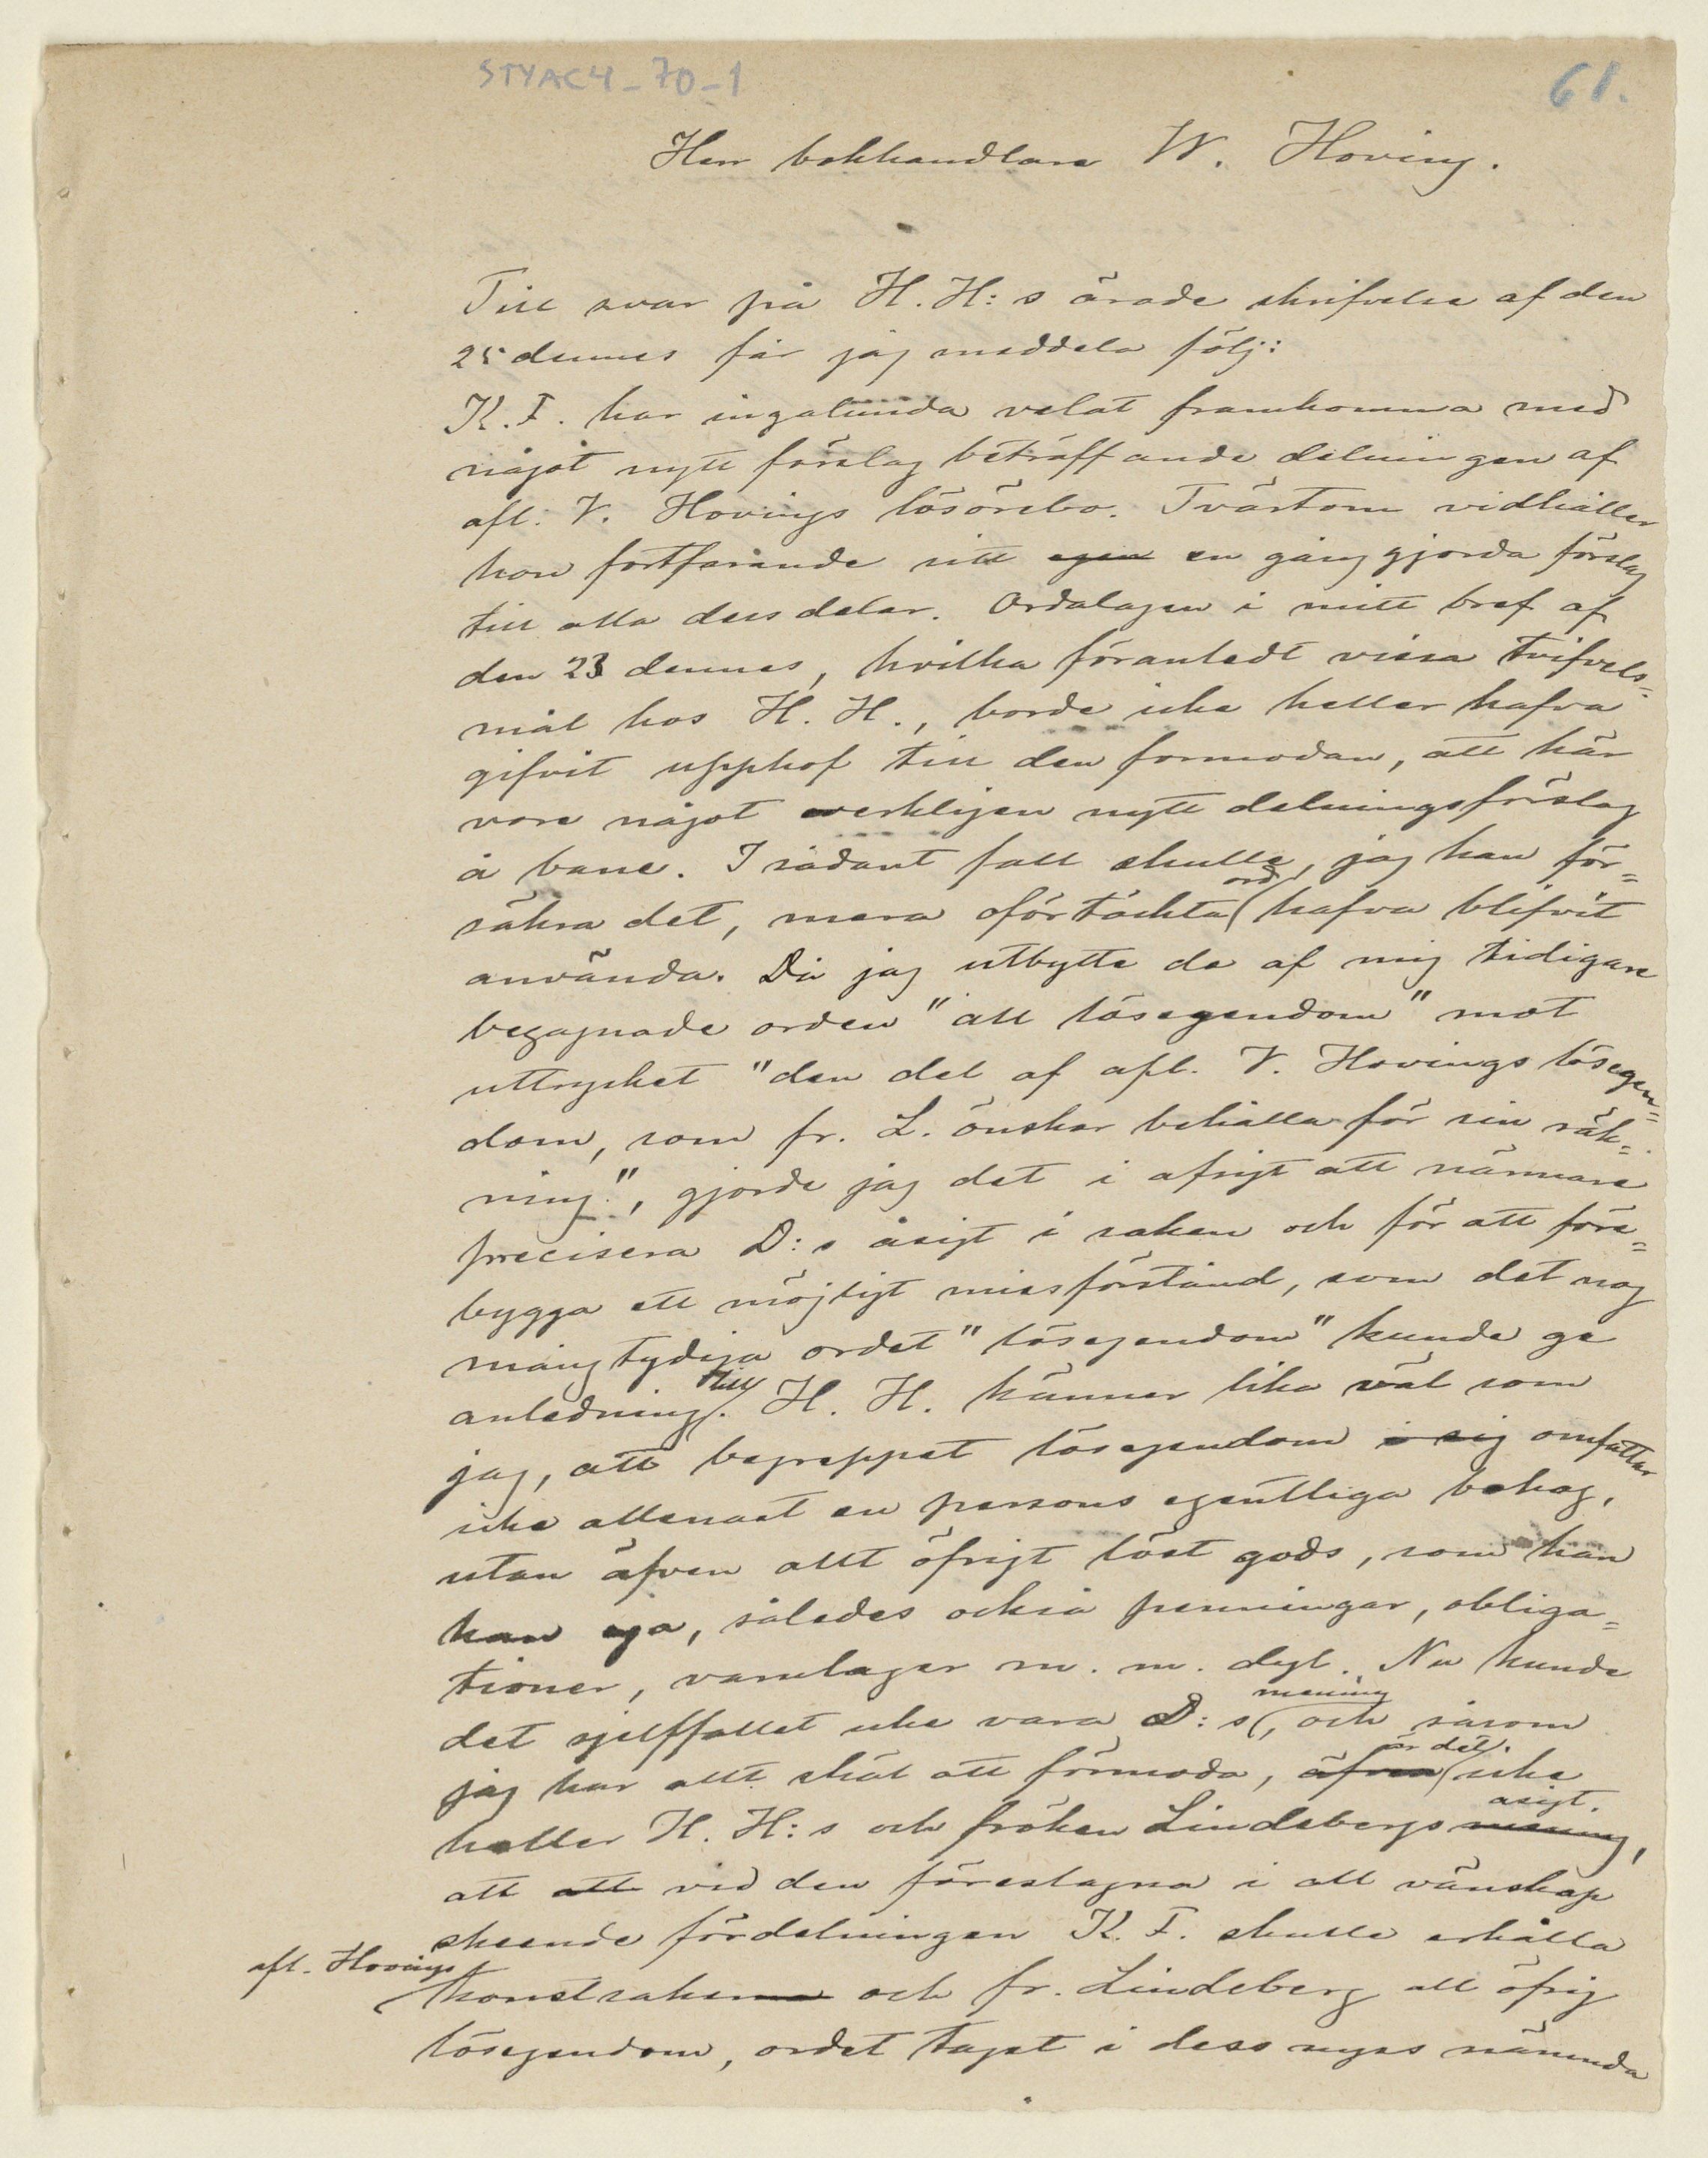 STYAC4_70_1
61.
Herr bokhandlare W. Hoving.
Till svar på H. H:s ärade skrifvelse af den
25 dennes får jag meddela följ:
K. F. har ingalunda velat framkomma med
något nytt förslag beträffande delningen af
afl. V. Hovings lösörebo. Tvärtom vidhåller
hon fortfarande sitt egen en gång gjorda förslag
till alla dess delar. Ordalagen i mitt bref af
den 23 dennes, hvilka föranledt vissa tvifvels=
mål hos H. H., borde icke heller hafva
gifvit upphof till den formodan, att här
vore något verkligen nytt delningsförslag
å bane. I sådant fall skulle, jag kan för=
säkra det, mera oförtäckta ord hafva blifvit
använda. Då jag utbytte de af mig tidigare
begagnade orden "all lösegendom" mot
uttrycket "den del af afl. V. Hovings lösegen=
dom, som fr. L. önskar behålla för sin räk=
ning", gjorde jag det i afsigt att närmare
precisera D:s åsigt i saken och för att före=
bygga ett möjligt missförstånd, som det nog
mångtydiga ordet "lösegendom" kunde ge
anledning till. H. H. känner lika väl som
jag, att begreppet lösegendom i sig omfattar
icke allenast en persons egentliga bohag,
utan äfven allt öfrigt löst gods, som han
kan ega, således också penningar, obliga=
tioner, varulager m. m. dyl. Nu kunde
det sjelffallet icke vara D:s mening, och såsom
jag har allt skäl att förmoda, äfven är det icke
heller H. H:s och fröken Lindebergs mening åsigt,
att att vid den föreslagna i all vänskap
skeende fördelningen K. F. skulle erhålla
afl. Hovings konstsaker och fr. Lindeberg all öfrig
lösegendom, ordet taget i dess nyss nämnda